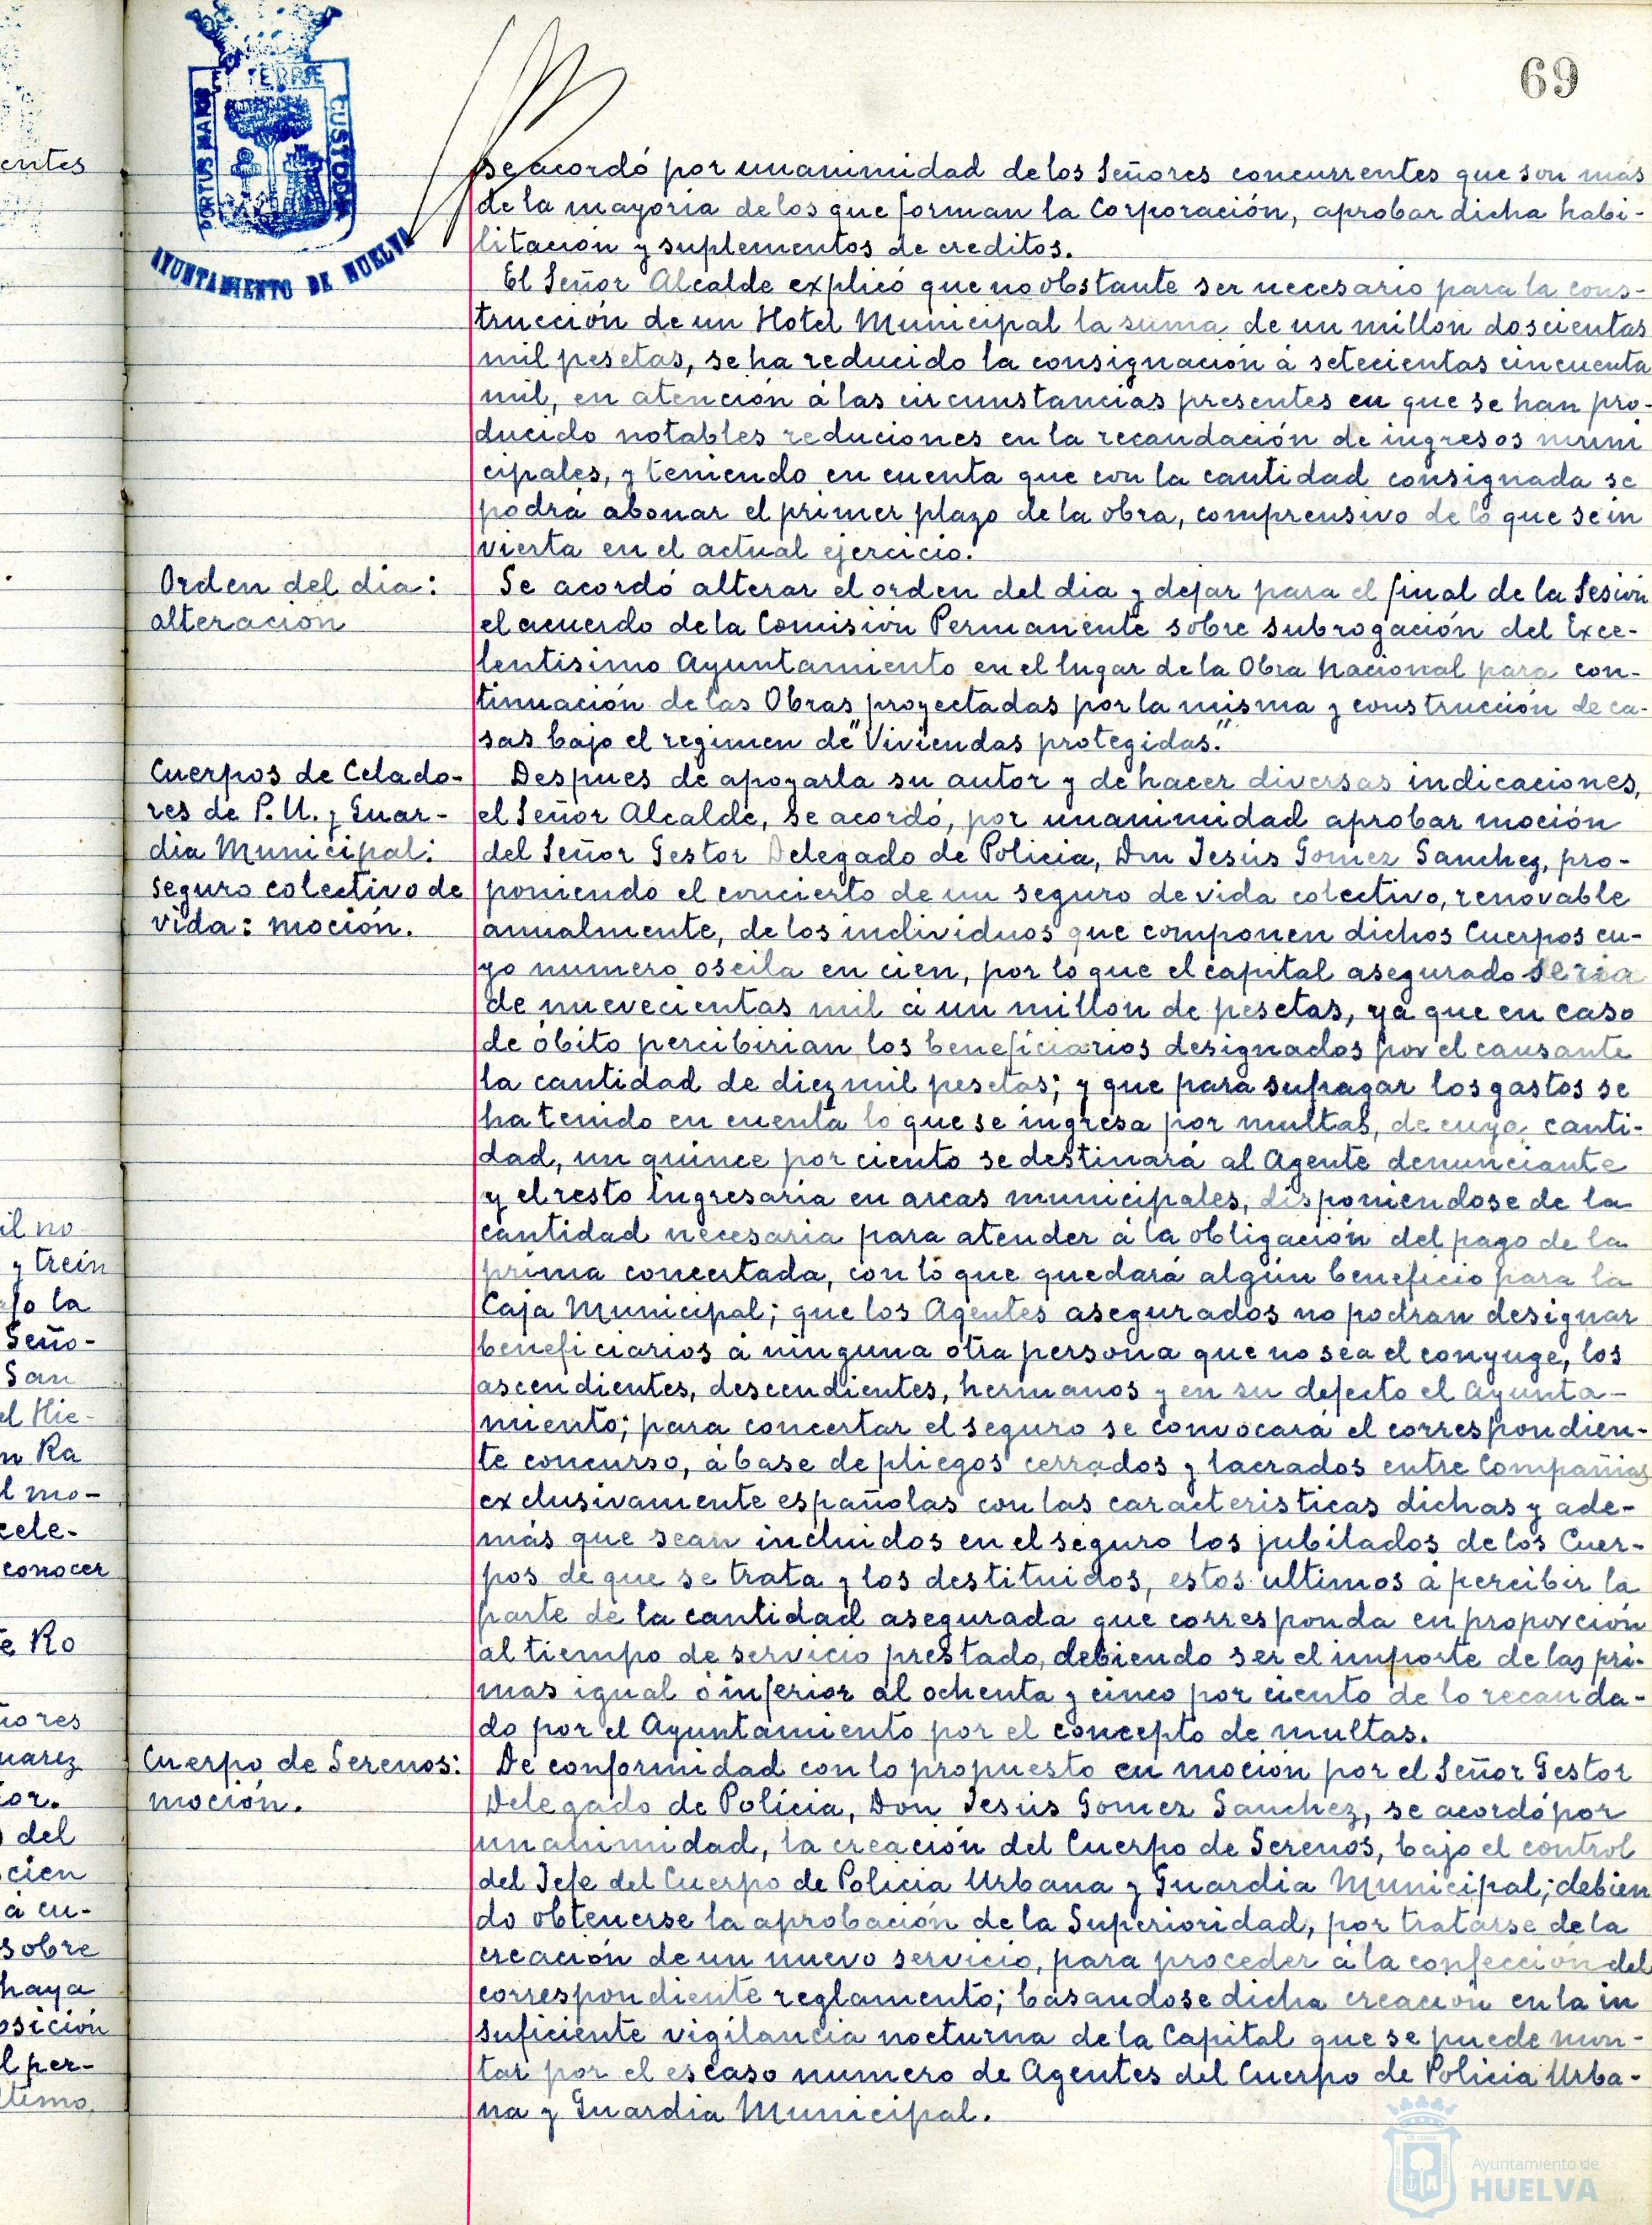 69
PORTUS MARIS ET TERRE CUSTODIA
AYUNTAMIENTO DE HUELVA
se acordó por unanimidad de los Señores concurrentes que son mas
de la mayoria de los que forman la Corporación, aprobar dicha habi-
litación y suplementos de creditos.
El Señor Alcalde explicó que no obstante ser necesario para la cons-
trucción de un Hotel Municipal la suma de un millon doscientas
mil pesetas, se ha reducido la consignación á setecientas cincuenta
mil, en atención á las circunstancias presentes en que se han pro-
ducido notables reduciones en la recaudación de ingresos muni
cipales, y teniendo en cuenta que con la cantidad consignada se
podrá abonar el primer plazo de la obra, comprensivo de lo que se in
vierta en el actual ejercicio.
Orden del dia:
alteración
Se acordó alterar el orden del dia y dejar para el final de la Sesión
el acuerdo de la Comisión Permanente sobre subrogación del Exce-
lentisimo Ayuntamiento en el lugar de la Obra Nacional para con-
tinuación de las Obras proyectadas por la misma y construcción de ca-
sas bajo el regimen de "Viviendas protegidas."
Cuerpos de Celado-
res de P.U. y Guar-
dia Municipal:
seguro colectivo de
vida: moción.
Despues de apoyarla su autor y de hacer diversas indicaciones,
el Señor Alcalde, se acordó, por unanimidad aprobar moción
del Señor Gestor Delegado de Policia, Don Jesús Gomez Sanchez, pro-
poniendo el concierto de un seguro de vida colectivo, renovable
anualmente, de los individuos que componen dichos Cuerpos cu-
yo numero oscila en cien, por lo que el capital asegurado seria
de nuevecientas mil á un millon de pesetas, ya que en caso
de óbito percibirian los beneficiarios designados por el causante
la cantidad de diez mil pesetas; y que para sufragar los gastos se
ha tenido en cuenta lo que se ingresa por multas, de cuya canti-
dad, un quince por ciento se destinará al Agente denunciante
y el resto ingresaria en arcas municipales, disponiendose de la
cantidad necesaria para atender á la obligación del pago de la
prima concertada, con lo que quedará algún beneficio para la
Caja Municipal; que los Agentes asegurados no podran designar
beneficiarios á ninguna otra persona que no sea el conyuge, los
ascendientes, descendientes, hermanos y en su defecto el Ayunta-
miento; para concertar el seguro se convocará el correspondien-
te concurso, á base de pliegos cerrados y lacrados entre Compañias
exclusivamente españolas con las caracteristicas dichas y ade-
más que sean incluidos en el seguro los jubilados de los Cuer-
pos de que se trata y los destituidos, estos ultimos á percibir la
parte de la cantidad asegurada que corresponda en proporción
al tiempo de servicio prestado, debiendo ser el importe de las pri-
mas igual ó inferior al ochenta y cinco por ciento de lo recauda-
do por el Ayuntamiento por el concepto de multas.
Cuerpo de Serenos:
moción.
De conformidad con lo propuesto en moción por el Señor Gestor
Delegado de Policia, Don Jesús Gomez Sanchez, se acordó por
unanimidad, la creación del Cuerpo de Serenos, bajo el control
del Jefe del Cuerpo de Policia Urbana y Guardia Municipal; debien
do obtenerse la aprobación de la Superioridad, por tratarse de la
creación de un nuevo servicio, para proceder á la confección del
correspondiente reglamento; basandose dicha creación en la in
suficiente vigilancia nocturna de la Capital que se puede mon-
tar por el escaso numero de Agentes del Cuerpo de Policia Urba-
na y Guardia Municipal.
entes
il no
y trein
ajo la
Seño-
San
el Hie-
n Ra
l mo-
cele-
conocer
e Ro
ñores
uarez
or.
del
cien
á cu-
sobre
haya
osición
l per-
ltimo
Ayuntamiento de
HUELVA